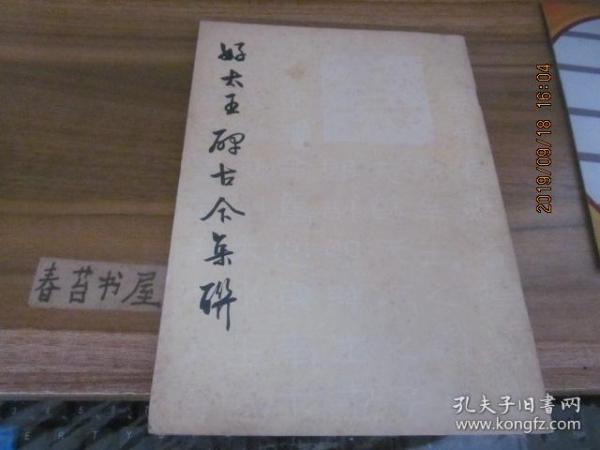 好太王碑古今集聯
春苔书屋
2019/09/18 16:04
孔夫子旧书网
www.kongfz.com